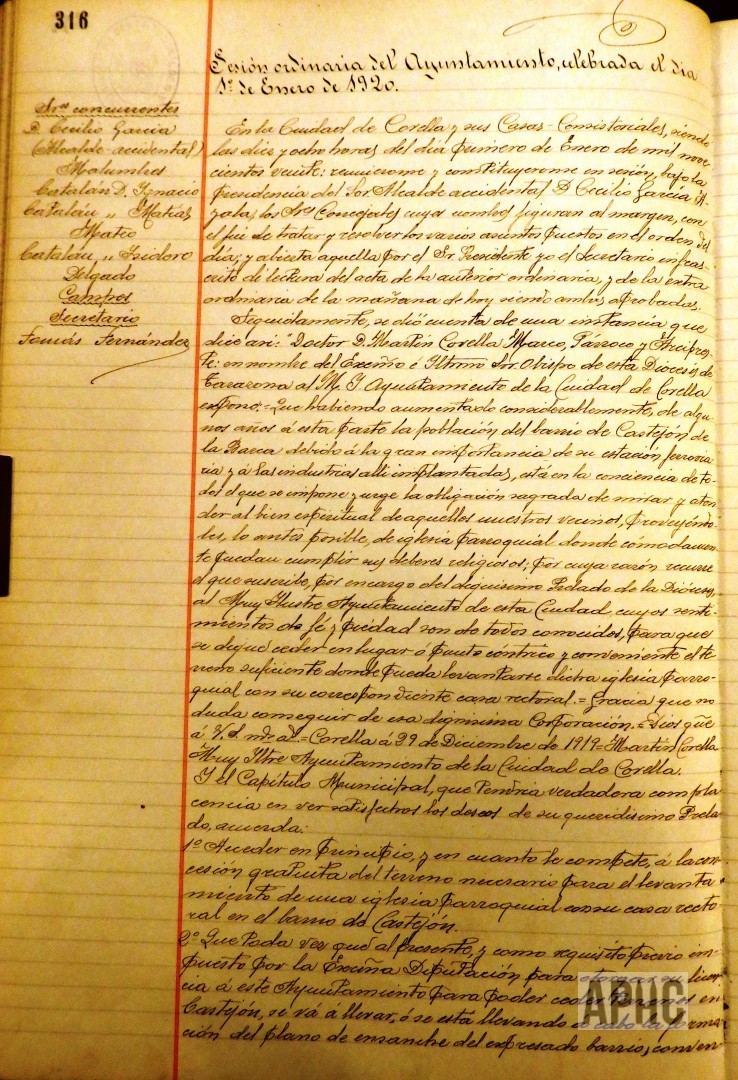 316
Sesión ordinaria del Ayuntamiento, celebrada el dia
1º de Enero de 1920.
Sres concurrentes
D. Cecilio García
(Alcalde accidental)
Malumbres
Catalán D. Ignacio
Catalán " Matías
Mateo
Catalán " Isidoro
Delgado
Campos
Secretario
Tomás Fernández
En la Cuidad de Corella y sus Casas-Comistoriales, siendo
las diez y ocho horas del dia primero de Enero de mil nove
cientos veinte: reunieronse y constituyeronse en sesión, bajo la
presidencia del Sor. Alcalde accidental D. Cecilio García A-
yala, los Sres Concejales cuyos nombres figuran al margen, con
el fin de tratar y resolver los varios asuntos puestos en el orden del
dia; y abierta aquella por el Sr. Presidente yo el Secretario infras-
crito di lectura del acta de la anterior ordinaria, y de la extra
ordinaria de la mañana de hoy siendo ambas aprobadas.
Seguidamente, se dió cuenta de una instancia que
dice asi: "Doctor D. Martín Corella Marco, Párroco y Arcipres-
te: en nombre del Excmo é Iltrmo Sor. Obispo de esta Diócesis de
Tarazona al M. I. Ayuntamiento de la Cuidad de Corella
expone:= Que habiendo aumentado considerablemente, de algu
nos años á esta parte la población del barrio de Castejón de
la Barca debido á la gran importancia de su estación ferrovia
ria y á las industrias alli implantadas, está en la conciencia de to-
dos el que se impone y urge la obligación sagrada de mirar y aten
der al bien espiritual de aquellos nuestros vecinos, proveyéndo-
les, lo antes posible, de iglesia parroquial donde cómodamen-
te puedan cumplir sus deberes religiosos; por cuya razón recurre
el que suscribe, por encargo del dignisimo Prelado de la Diócesis,
al Muy Ilustre Ayuntamiento de esta Cuidad cuyos senti-
mientos de fé y piedad son de todos conocidos, para que
se digne ceder en lugar ó punto céntrico y conveniente el te
rreno suficiente donde pueda levantarse dicha iglesia parro-
quial con su correspondiente casa rectoral.= Gracia que no
duda conseguir de esa dignisima Corporación.= Dios gúe
á V.S. ms. as.= Corella á 29 de Diciembre de 1919= Martín Corella
Muy Iltre Ayuntamiento de la Cuidad de Corella.
Y el Capítulo Municipal, que tendria verdadera compla
cencia en ver satisfechos los deseos de su queridisimo Prela
do, acuerda:
1º Acceder en principio, y en cuanto le compete, á la con
cesión gratuita del terreno necesario para el levanta
miento de una iglesia parroquial con su casa recto-
ral en el barrio de Castejón.
2º Que toda vez que al presente, y como requisito previo im-
puesto por la Excma Diputación para otorgar su licen
cia á este Ayuntamiento para poder ceder terrenos en
Castejón, se vá á llevar, ó se está llevando á cabo la forma
ción del plano de ensanche del expresado barrio, conven-
APHC